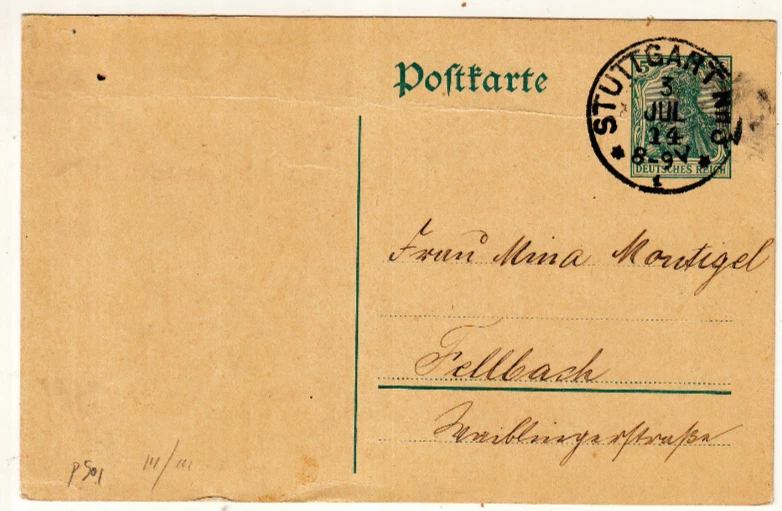 Postkarte
STUTTGART No 3
3
JUL
14
8-9V
1
DEUTSCHES REICH
Frau Mina Montigel
Fellbach
Waiblingerstraße
III/III